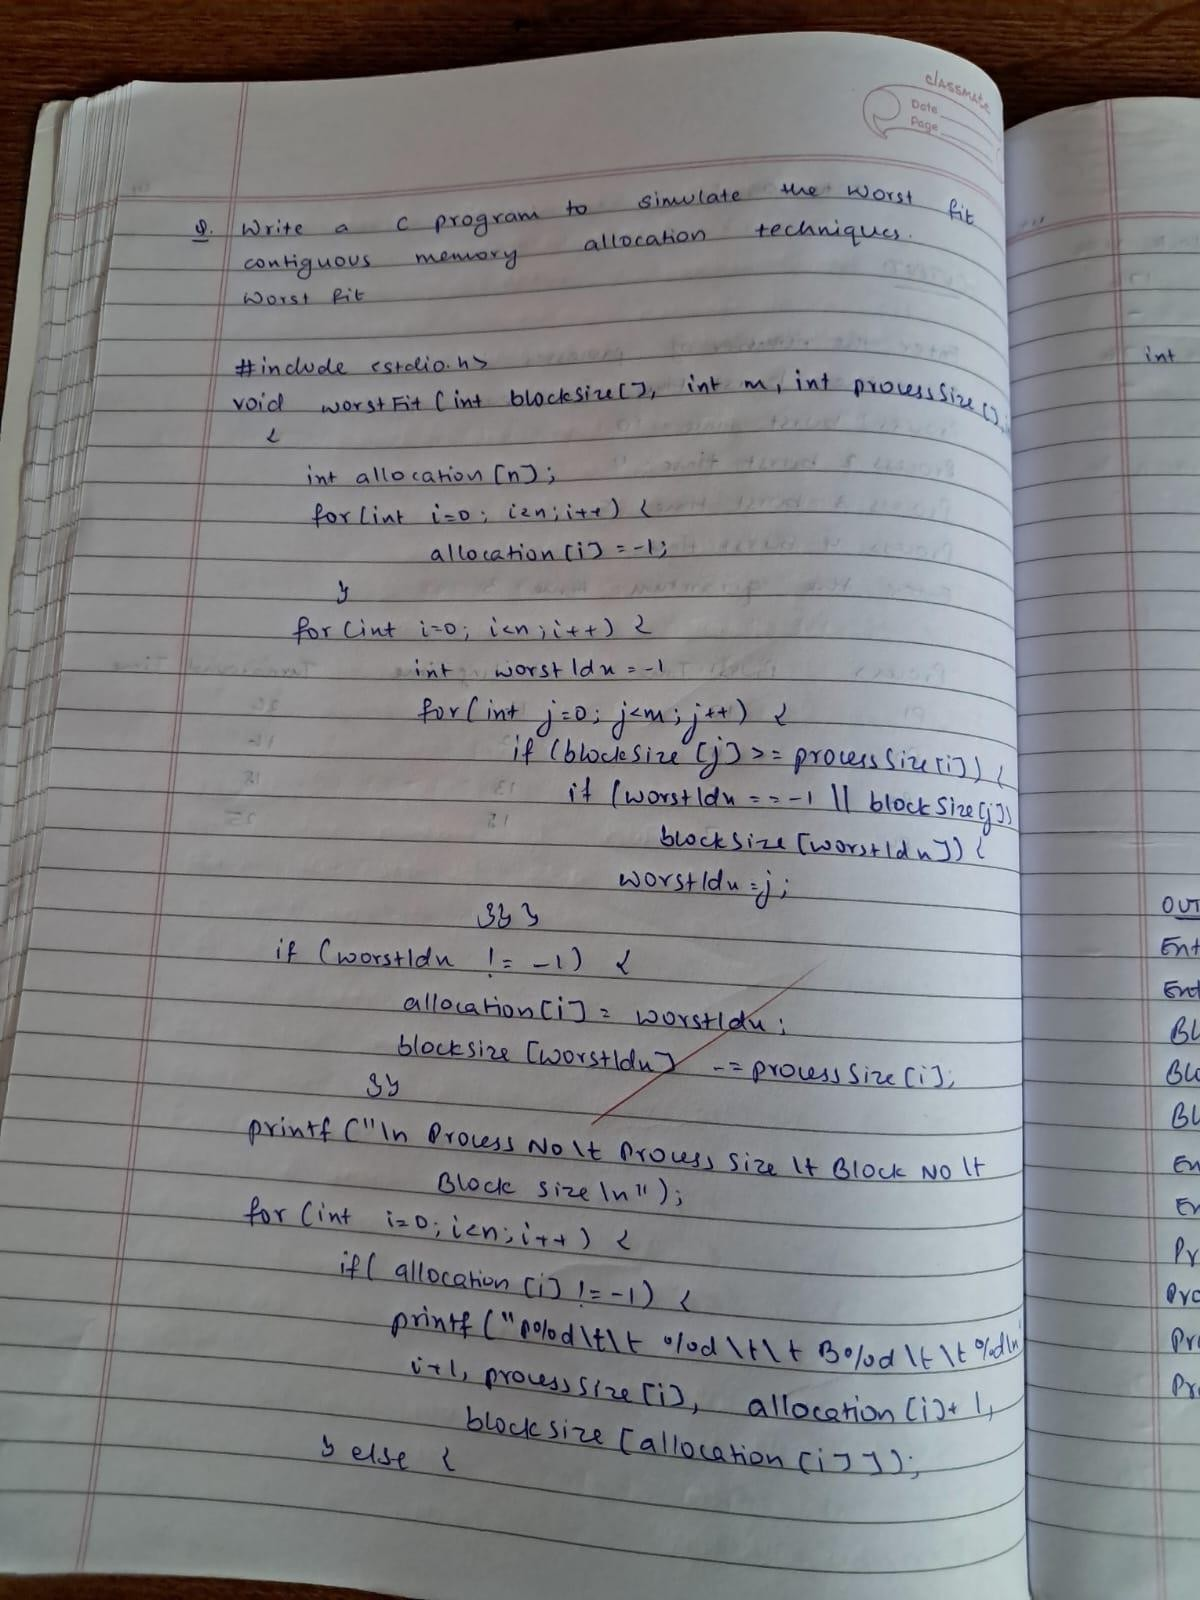 classmate
Date
Page
Q. Write a C program to simulate the worst fit
contiguous memory allocation techniques.
Worst fit
#include <stdio.h>
void worstFit (int blocksize[], int m, int processSize[],
{
int allocation[n];
for(int i=0; i<n; i++) {
allocation[i] = -1;
}
for (int i=0; i<n; i++) {
int worstIdx = -1
for(int j=0; j<m; j++) {
if (blockSize[j] >= processSize[i]) {
if (worstIdx == -1 || blockSize[j]
blockSize[worstIdx]) {
worstIdx = j;
}}}
if (worstIdx != -1) {
allocation[i] = worstIdx;
blocksize[worstIdx] -= processSize[i];
}}
printf("\n Process No\t Process Size \t Block No \t
Block size \n");
for (int i=0; i<n; i++) {
if( allocation[i] != -1) {
printf("P%d\t\t %d\t\t B%d\t\t %d\n
i+1, processSize[i], allocation[i]+1,
blocksize[allocation[i]]);
} else {
int
OUT
Ent
Ent
Bl
Blo
Bl
En
En
Pr
Pro
Pro
Pro